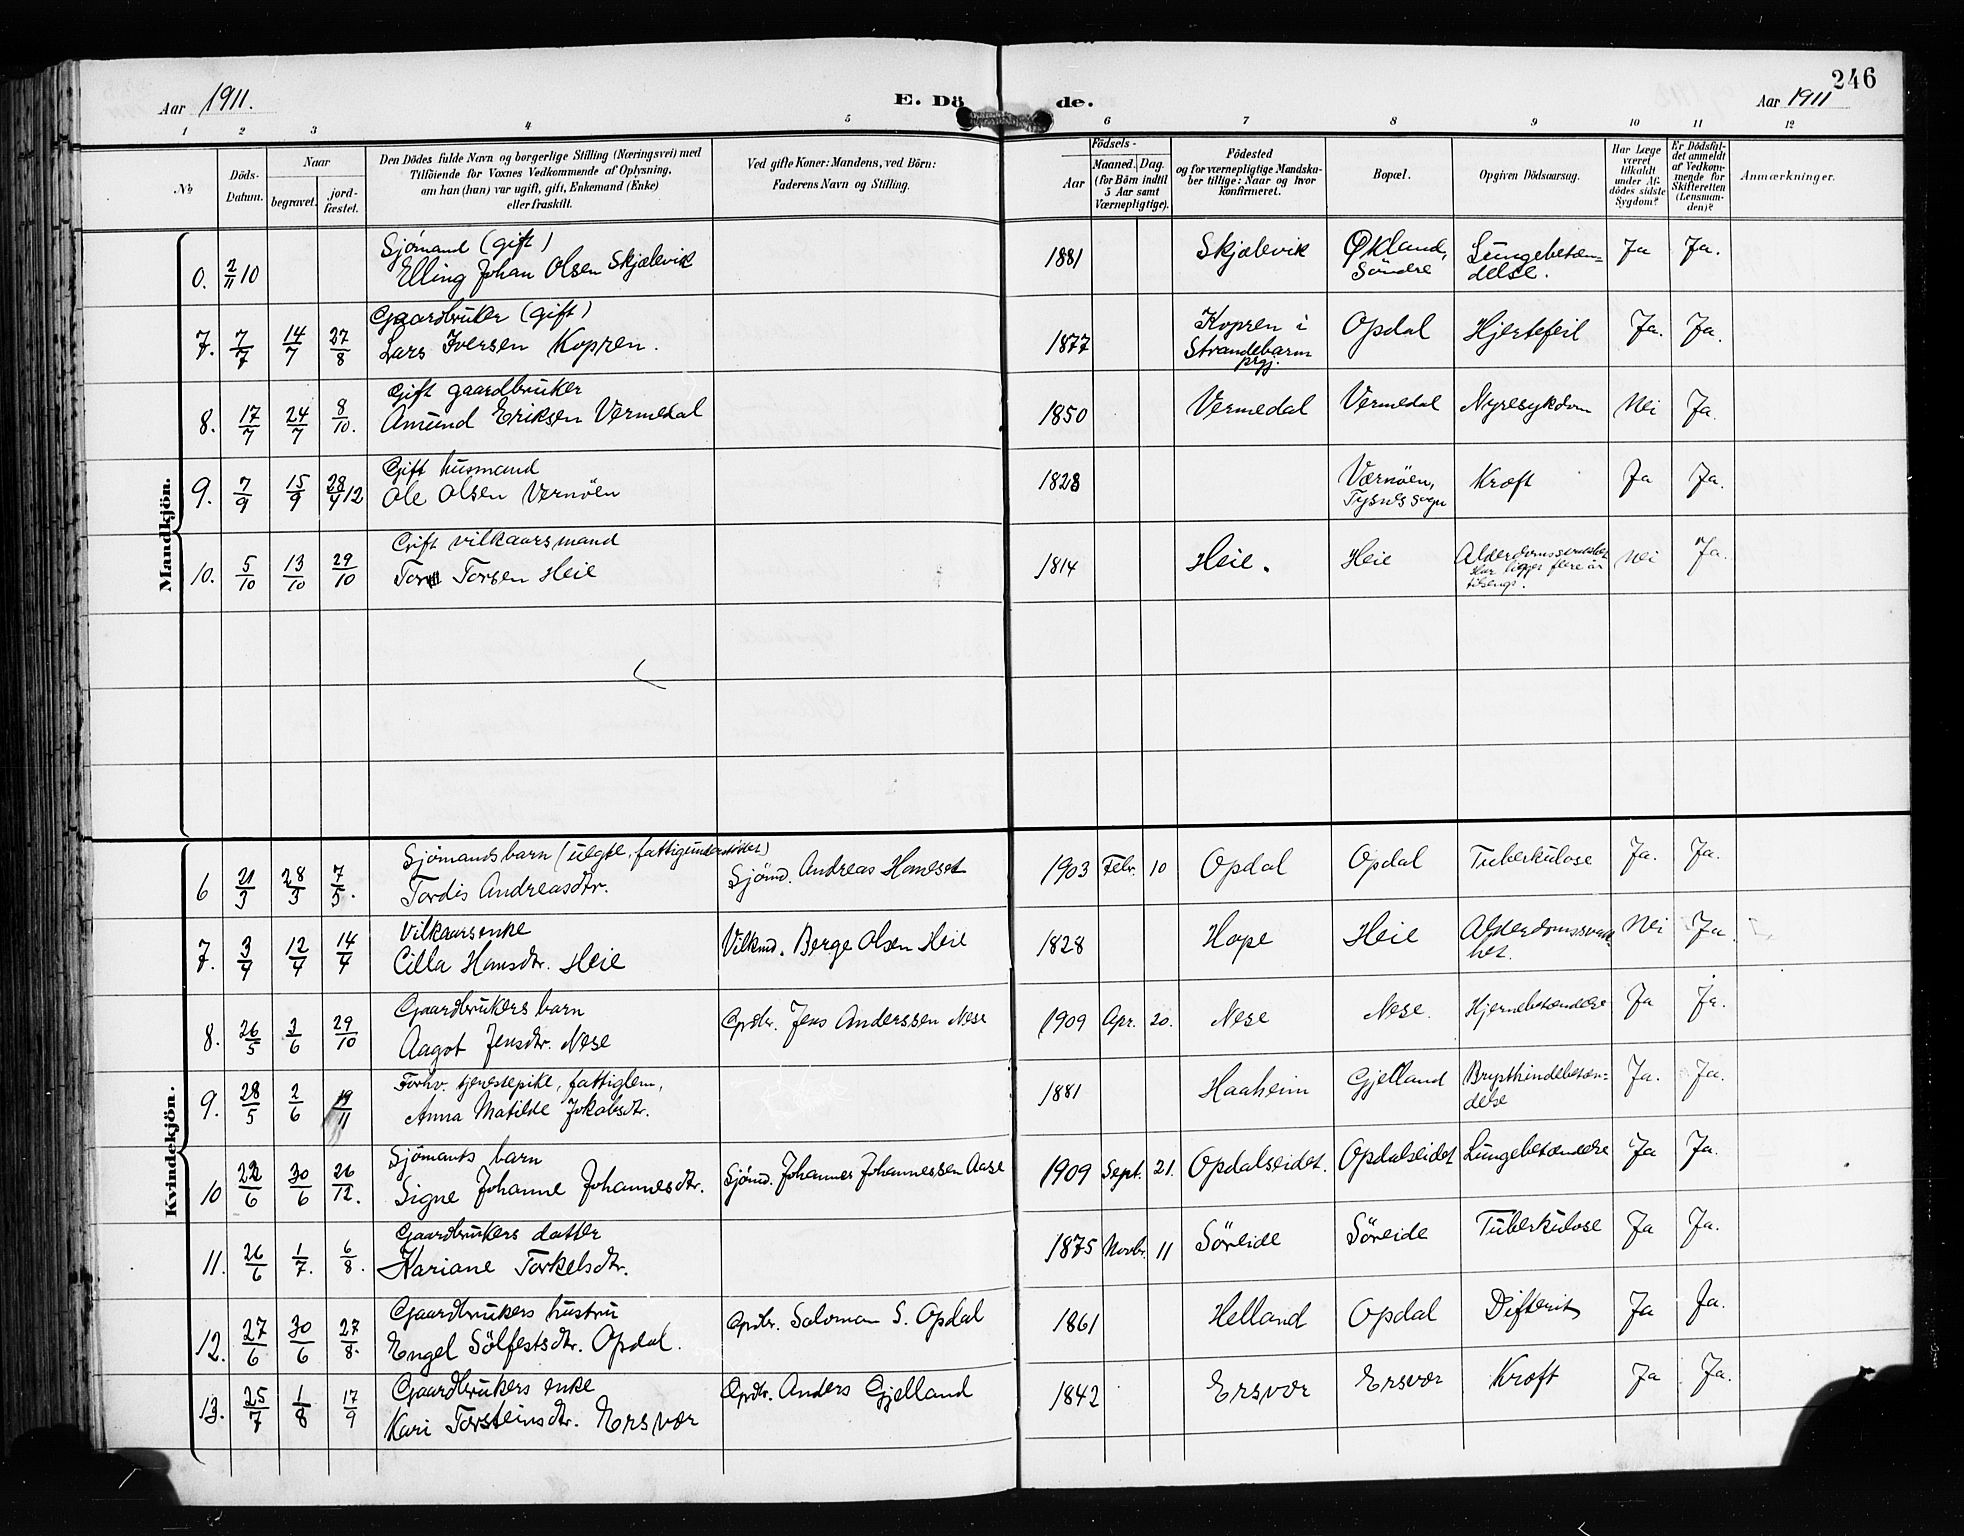 246
Aar 1911.
E. Dö de.
Aar 1911
1 2 3 4 5 6 7 8 9 10 11 12
No
Döds-
Datum.
Naar
begravet.
jord-
fæstet.
Den Dödes fulde Navn og borgerlige Stilling (Næringsvei) med
Tilföiende for Voxnes Vedkommende af Oplysning,
om han (hun) var ugift, gift, Enkemand (Enke)
eller fraskilt.
Ved gifte Koner: Mandens, ved Börn:
Faderens Navn og Stilling.
Födsels-
Aar
Maaned. Dag.
(for Börn indtil
5 Aar samt
Værnepligtige).
Födested
og for værnepligtige Mandska-
ber tillige: Naar og hvor
konfirmeret.
Bopæl.
Opgiven Dödsaarsag.
Har Læge
været
tilkaldt
under Af-
dödes sidste
Sygdom?
Er Dödsfal-
det anmeldt
af Vedkom-
mende for
Skifteretten
(Lensman-
den)?
Anmærkninger.
Mandkjön.
Sjömand (gift)
0. 2/11 10 Elling Johan Olsen Skjælevik 1881 Skjælevik Økland, Söndre Lungebetæn-
delse. Ja Ja.
Gaardbruker (gift)
7. 7/7 14/7 27/8 Lars Iversen Kopren. 1877 Kopren i
Strandebarm
prgj. Opdal Hjertefeil Ja. Ja.
Gift gaardbruker
8. 17/7 24/7 8/10. Amund Eriksen Vermedal 1850 Vermedal Vermedal Nyresykdom Nei Ja.
Gift husmand
9. 7/9 15/9 28/4 12 Ole Olsen Vernöen 1828 Værnöen,
Tysnes sogn Kræft Ja Ja.
Gift vilkaarsmand
10. 5/10 13/10 29/10 Torsen Heie 1814 Heie. Heie Alderdomssvakhet
Har ligget flere aar
tilsengs. Nei Ja.
Kvindekjön.
Sjömands barn (uegte, fattigunderstöttet)
6 21/3 28/3 7/5. Tordis Andreasdtr. Sjömd. Andreas Hameset 1903 Febr. 10 Opdal Opdal Tuberkulose Ja. Ja.
Vilkaarsenke
7. 3/4 12/4 14/4 Cilla Hansdtr. Heie Vilkmd. Berge Olsen Heie 1828 Hope Heie Alderdomssvak-
het. Nei Ja.
Gaardbrukers barn
8. 26/5 3/6 29/10 Aagot Jensdtr. Nese Grdbr. Jens Anderssen Nese 1909 Apr. 20. Nese Nese. Hjernebetændelse Ja Ja.
Forhv. tjenestepike, fattiglem,
9. 28/5 2/6 19/11 Anna Matilde Jakobsdtr. 1881 Haaheim Gjelland Brysthindebetæn-
delse Ja. Ja.
Sjömands barn
10 22/6 30/6 26/12. Signe Johanne Johannesdtr. Sjömd. Johannes Johannessen Aase 1909 Sept. 21. Opdalseidet. Opdalseidet Lungebetændelse Ja Ja.
Gaardbrukers datter
11. 26/6 1/7. 6/8. Mariane Torkelsdtr. 1875 Novbr. 11 Söreide Söreide Tuberkulose Ja Ja.
Gaardbrukers hustru
12. 27/6 30/6 27/8. Engel Sölfestsdtr. Opdal. Grdbr. Salomon S. Opdal 1861 Helland Opdal Difterit Ja Ja.
Gaardbrukers enke
13. 25/7 1/8 17/9 Kari Torsteinsdtr. Ersvær Grdbr. Anders Gjelland 1842 Ersvær Ersvær Kræft Ja Ja.